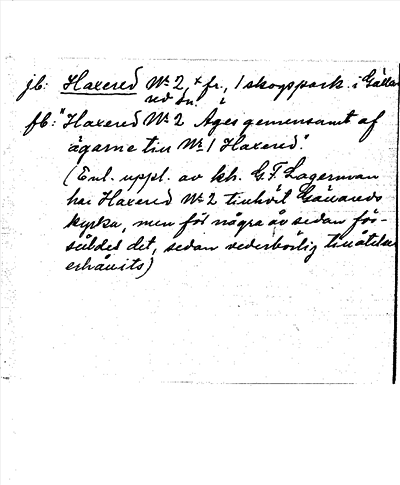 jb: Haxered No 2, + fr., 1 skogspark. i Gälla
red. sn.
fb: "Haxered No 2 Äges gemensamt af
ägarne till No 1 Haxered".
(Enl. uppl. av kh. G. F. Lagerman
har Haxered No 2 tillhört Gällareds
kyrka, men för några år sedan för-
såldes det, sedan vederbörlig tillåtelse
erhållits)